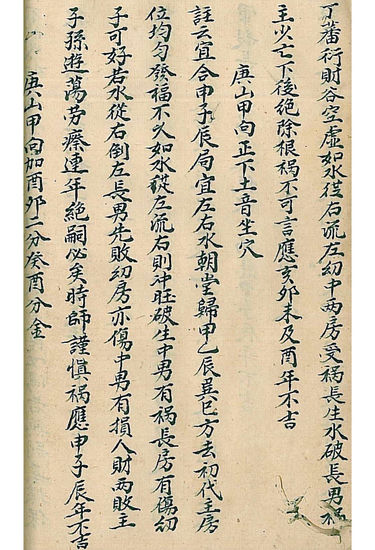 丁蕃衍財谷空虛如水從右流左幼中両房受祸長生水破長男祸
主少亡下後絶除根祸不可言應亥卯未及酉年不吉
庚山甲向正下土音坐穴
註云宜合申子辰局宜左右水朝堂歸甲乙辰巽巳方去初代主房
位均匀發福不久如水從左流右則冲旺破生中男有祸長房有傷幼
子可好若水從右倒左長男先敗幼房亦傷中男有損人財両敗主
子孫遊蕩劳瘵連年絶嗣必矣時師謹慎祸應申子辰年不吉
庚山甲向加酉卯二分癸酉分金